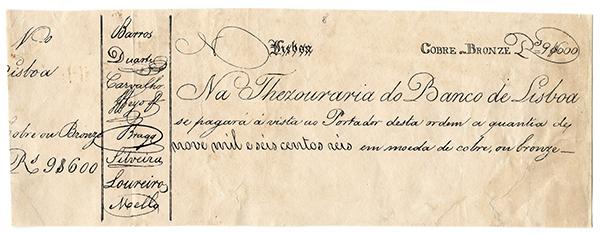 Nº
Lisboa
Cobre ou Bronze
Rˢ 9$600
Barros
Duarte
Carvalho
Bragª
Silveira
Loureiro
Mello
Nº Lisboa Cobre ou Bronze Rˢ 9$600
Na Thezouraria do Banco de Lisboa
se pagará à vista ao Portador desta ordem a quantia de
nove mil e seis centos réis em moeda de cobre, ou bronze